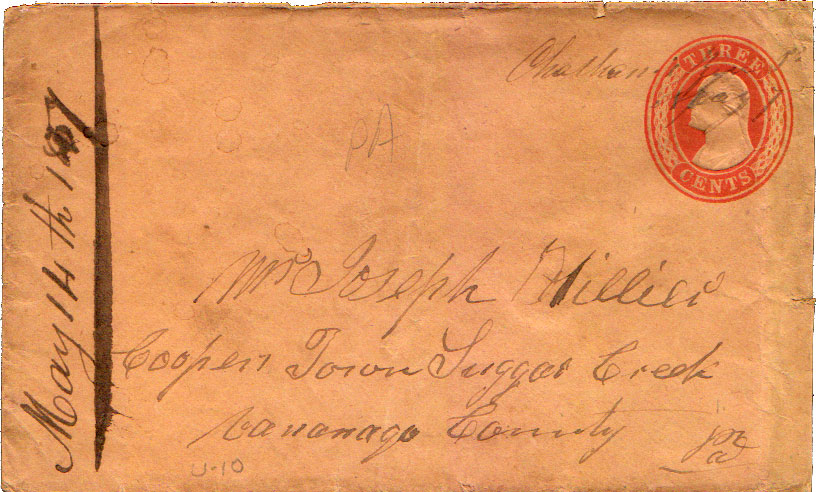 May 14th 1857
THREE
CENTS
PA
Mr Joseph Hillier
Cooper Town Suggar Creek
Vanonago County
Pa
U-10